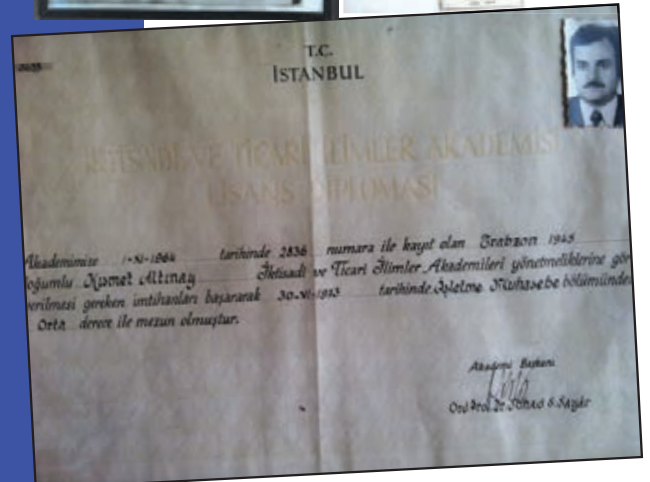 T.C.
İSTANBUL
İKTİSADİ VE TİCARİ İLİMLER AKADEMİSİ
LİSANS DİPLOMASI
Akademimize 1-XI-1964 tarihinde 2836 numara ile kayıt olan Trabzon 1945
doğumlu Altınay İktisadi ve Ticari İlimler Akademileri yönetmeliklerine gör
verilmesi gereken imtihanları başararak tarihinde İşletme Muhasebe bölümünde
Orta derece ile mezun olmuştur.
Akademi Başkanı
Ord. Prof. Dr. S. Sayar